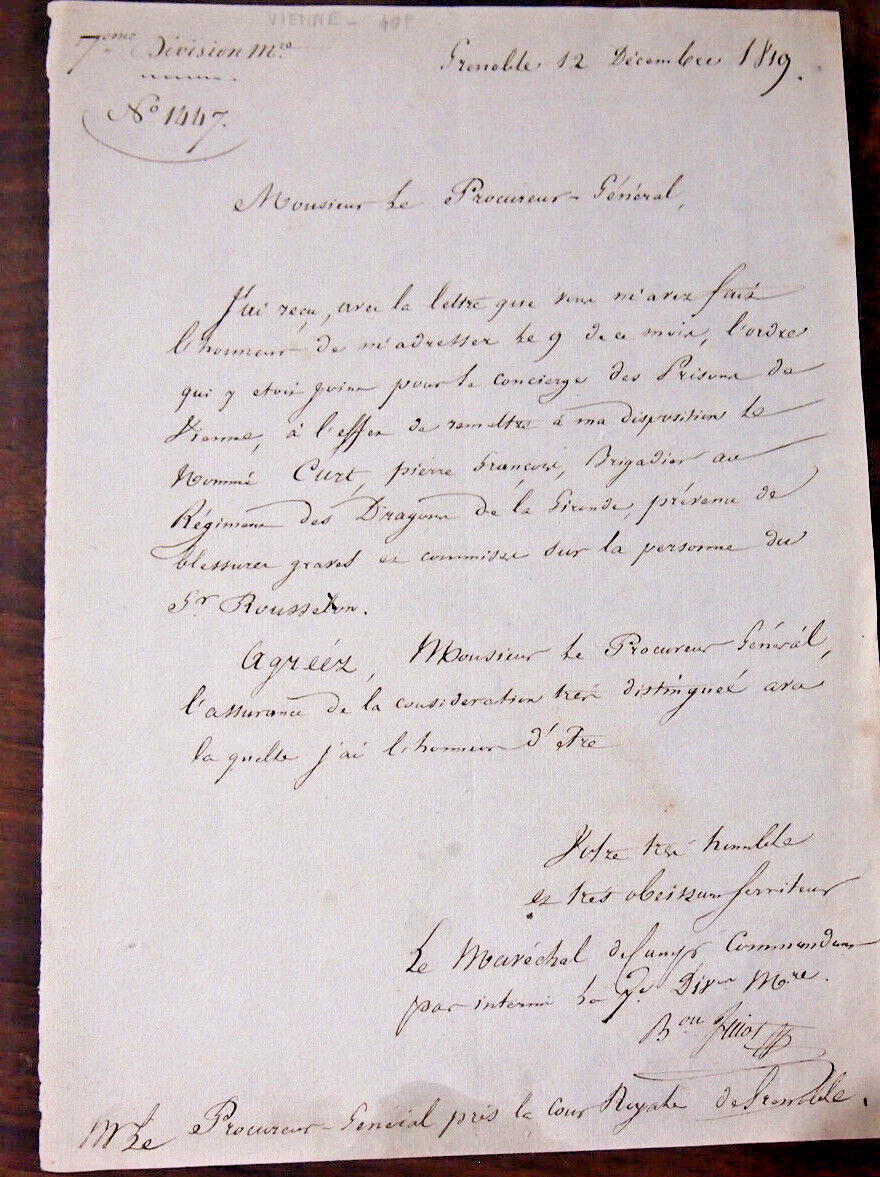 VIENNE - 40F -
7eme Division Mre
Grenoble 12 Décembre 1819.
No 1447.
Monsieur Le Procureur-Général,
J'ai reçu, avec la lettre que vous m'avez fait
l'honneur de m'adresser le 9 de ce mois, l'ordre
qui y etoit joint pour le concierge des Prisons de
Vienne, à l'effet de remettre à ma disposition le
Nommé Curt, pierre françois, Brigadier au
Régiment des Dragons de la Gironde, prévenu de
blessures graves et commises sur la personne du
Sr Rousselon.
Agréez, Monsieur Le Procureur Général,
l'assurance de la consideration très distinguée avec
la quelle j'ai l'honneur d'être
Votre très humble
et très obeissant serviteur
Le Maréchal de Camp Commandant
par interim la 7e Dion Mre.
Bon
Mr Le Procureur-Général près la cour Royale de Grenoble.